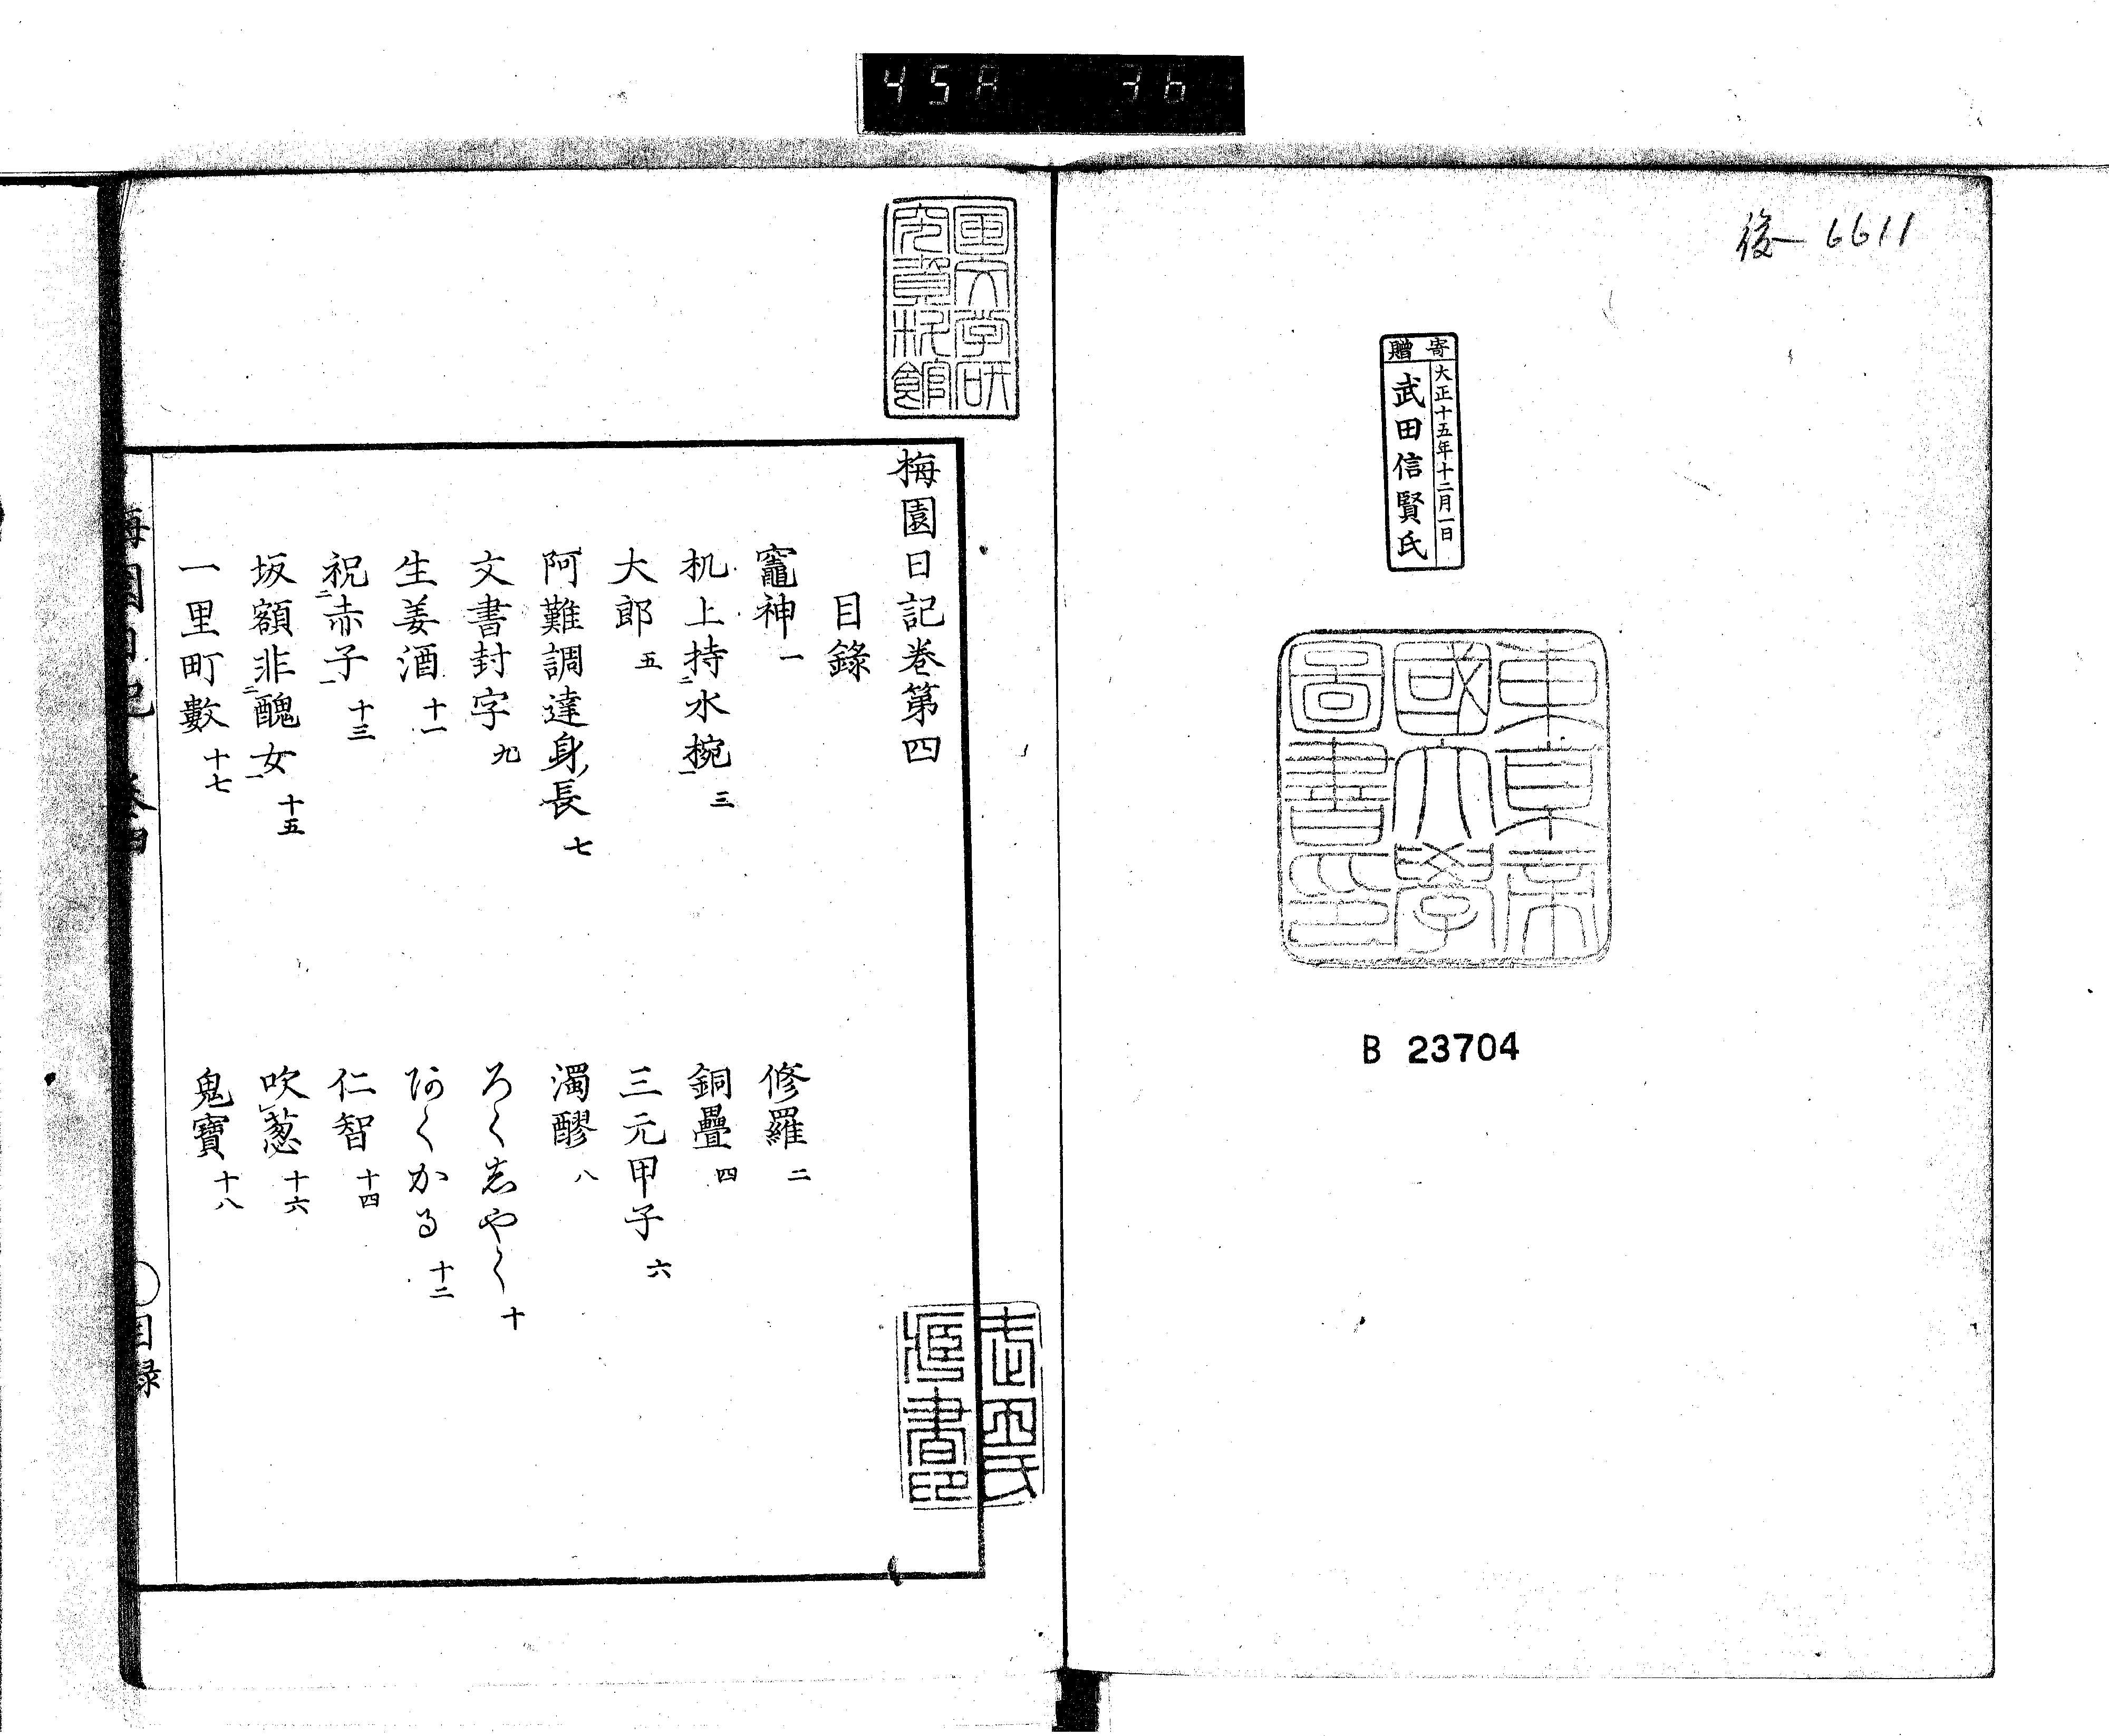 45A 36
後 6611
寄贈
大正十五年十二月一日
武田信賢氏
東京帝
國大學
圖書印
B 23704
国文学研
究資料館
梅園日記巻第四
目錄
竈神 一
修羅 二
机上持二水椀一 三
銅疊 四
大郎 五
三元甲子 六
阿難調達身ノ長 七
濁醪 八
文書封字 九
ろくしやく 十
生姜酒 十一
阿くかる 十二
祝二赤子一 十三
仁智 十四
坂額非二醜女一 十五
吹葱 十六
一里町數 十七
鬼寶 十八
梅園日記 巻四
目録
藏書印